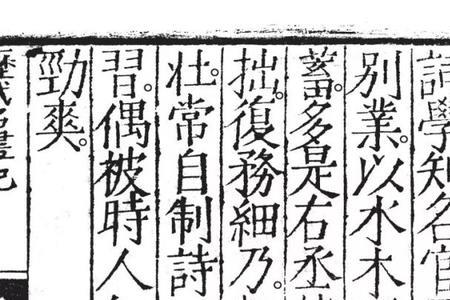 詞學知名官
別業。以水木
蓄。多是右丞
拙。復務細乃。
壯。常自制詩
習。偶被時人
勁爽。
歷代名畫記